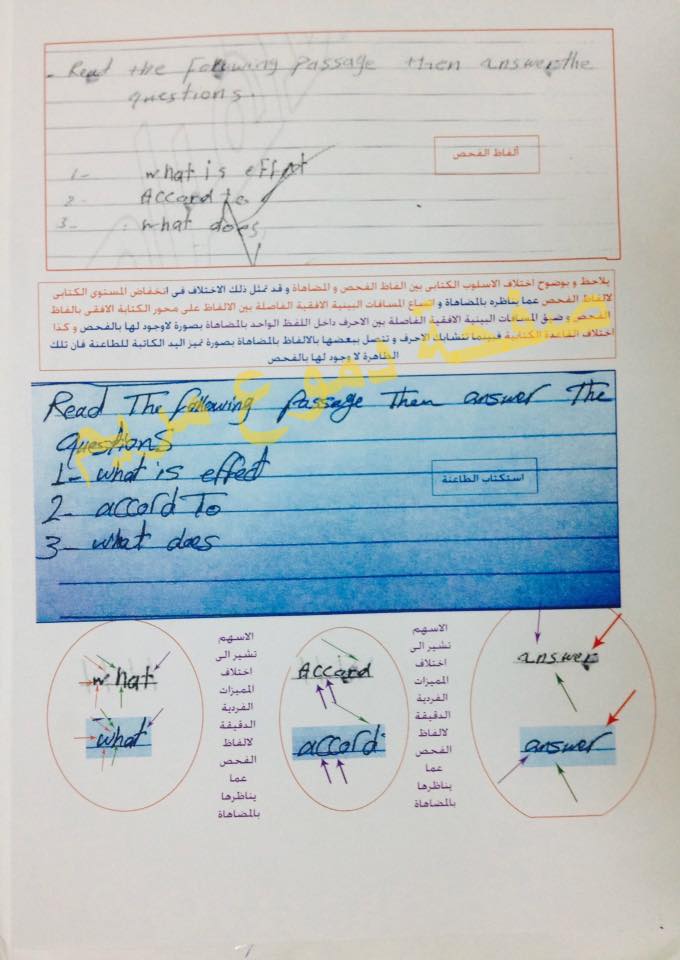 - Read the Following Passage then answer the
questions.
ألفاظ الفحص
1- what is effect
2- Accord to
3- what does
يلاحظ و بوضوح اختلاف الاسلوب الكتابى بين الفاظ الفحص و المضاهاة و قد تمثل ذلك الاختلاف فى انخفاض المستوى الكتابى
لالفاظ الفحص عما يناظره بالمضاهاة و اتساع المسافات البينية الافقية الفاصلة بين الالفاظ على محور الكتابة الافقى بالفاظ
الفحص و ضيق المسافات البينية الافقية الفاصلة بين الاحرف داخل اللفظ الواحد بالمضاهاة بصورة لاوجود لها بالفحص و كذا
اختلاف القاعدة الكتابية فبينما تتشابك الاحرف و تتصل ببعضها بالالفاظ بالمضاهاة بصورة تميز اليد الكاتبة للطاعنة فان تلك
الظاهرة لا وجود لها بالفحص
دموع مريم
Read The following Passage Then answer The
questions
1- what is effect
استكتاب الطاعنة
2- accord To
3- what does
answer
answer
الاسهم
تشير الى
اختلاف
المميزات
الفردية
الدقيقة
لالفاظ
الفحص
عما
يناظرها
بالمضاهاة
Accord
accord
الاسهم
تشير الى
اختلاف
المميزات
الفردية
الدقيقة
لالفاظ
الفحص
عما
يناظرها
بالمضاهاة
what
what